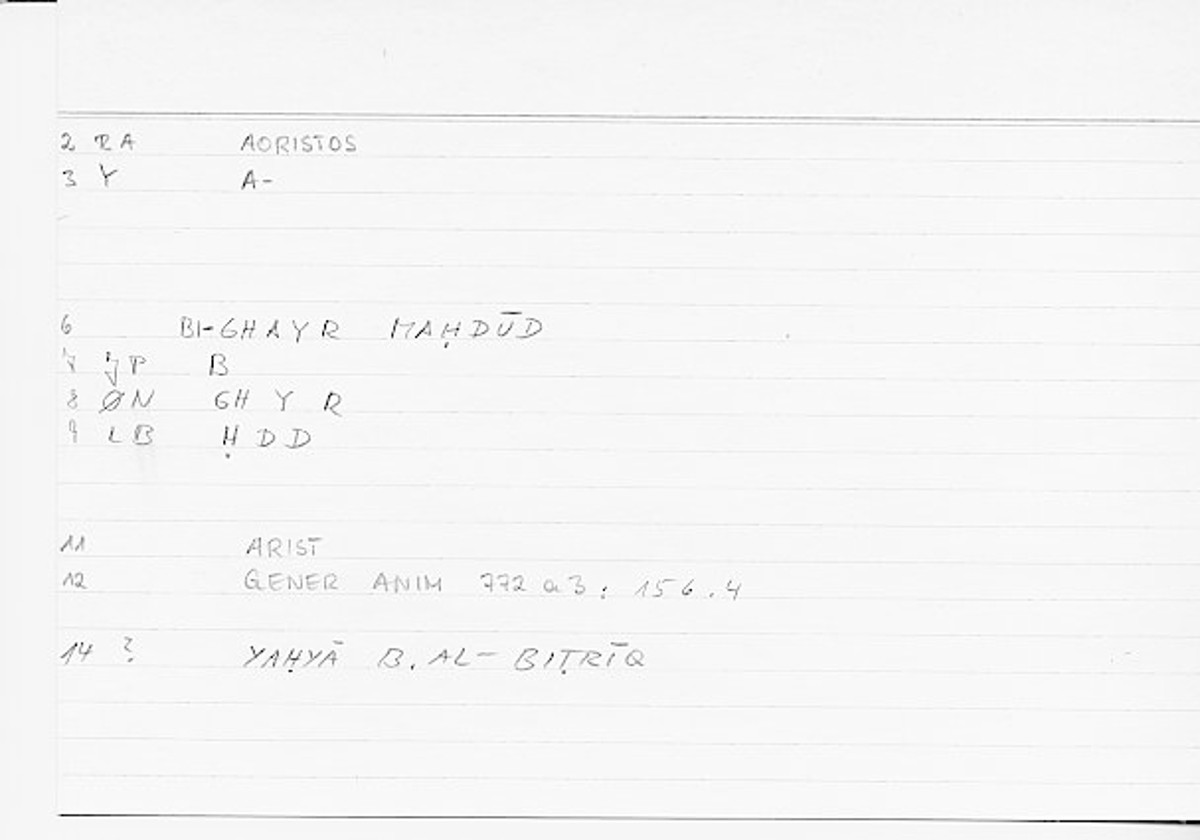 2 RA AORISTOS
3 Y A-
6 BI-GHAYR MAḤDŪD
7 JP B
8 ØN GHYR
9 LB ḤDD
11 ARIST
12 GENER ANIM 772a3; 156.4
14 ? YAḤYĀ B. AL-BIṬRĪQ